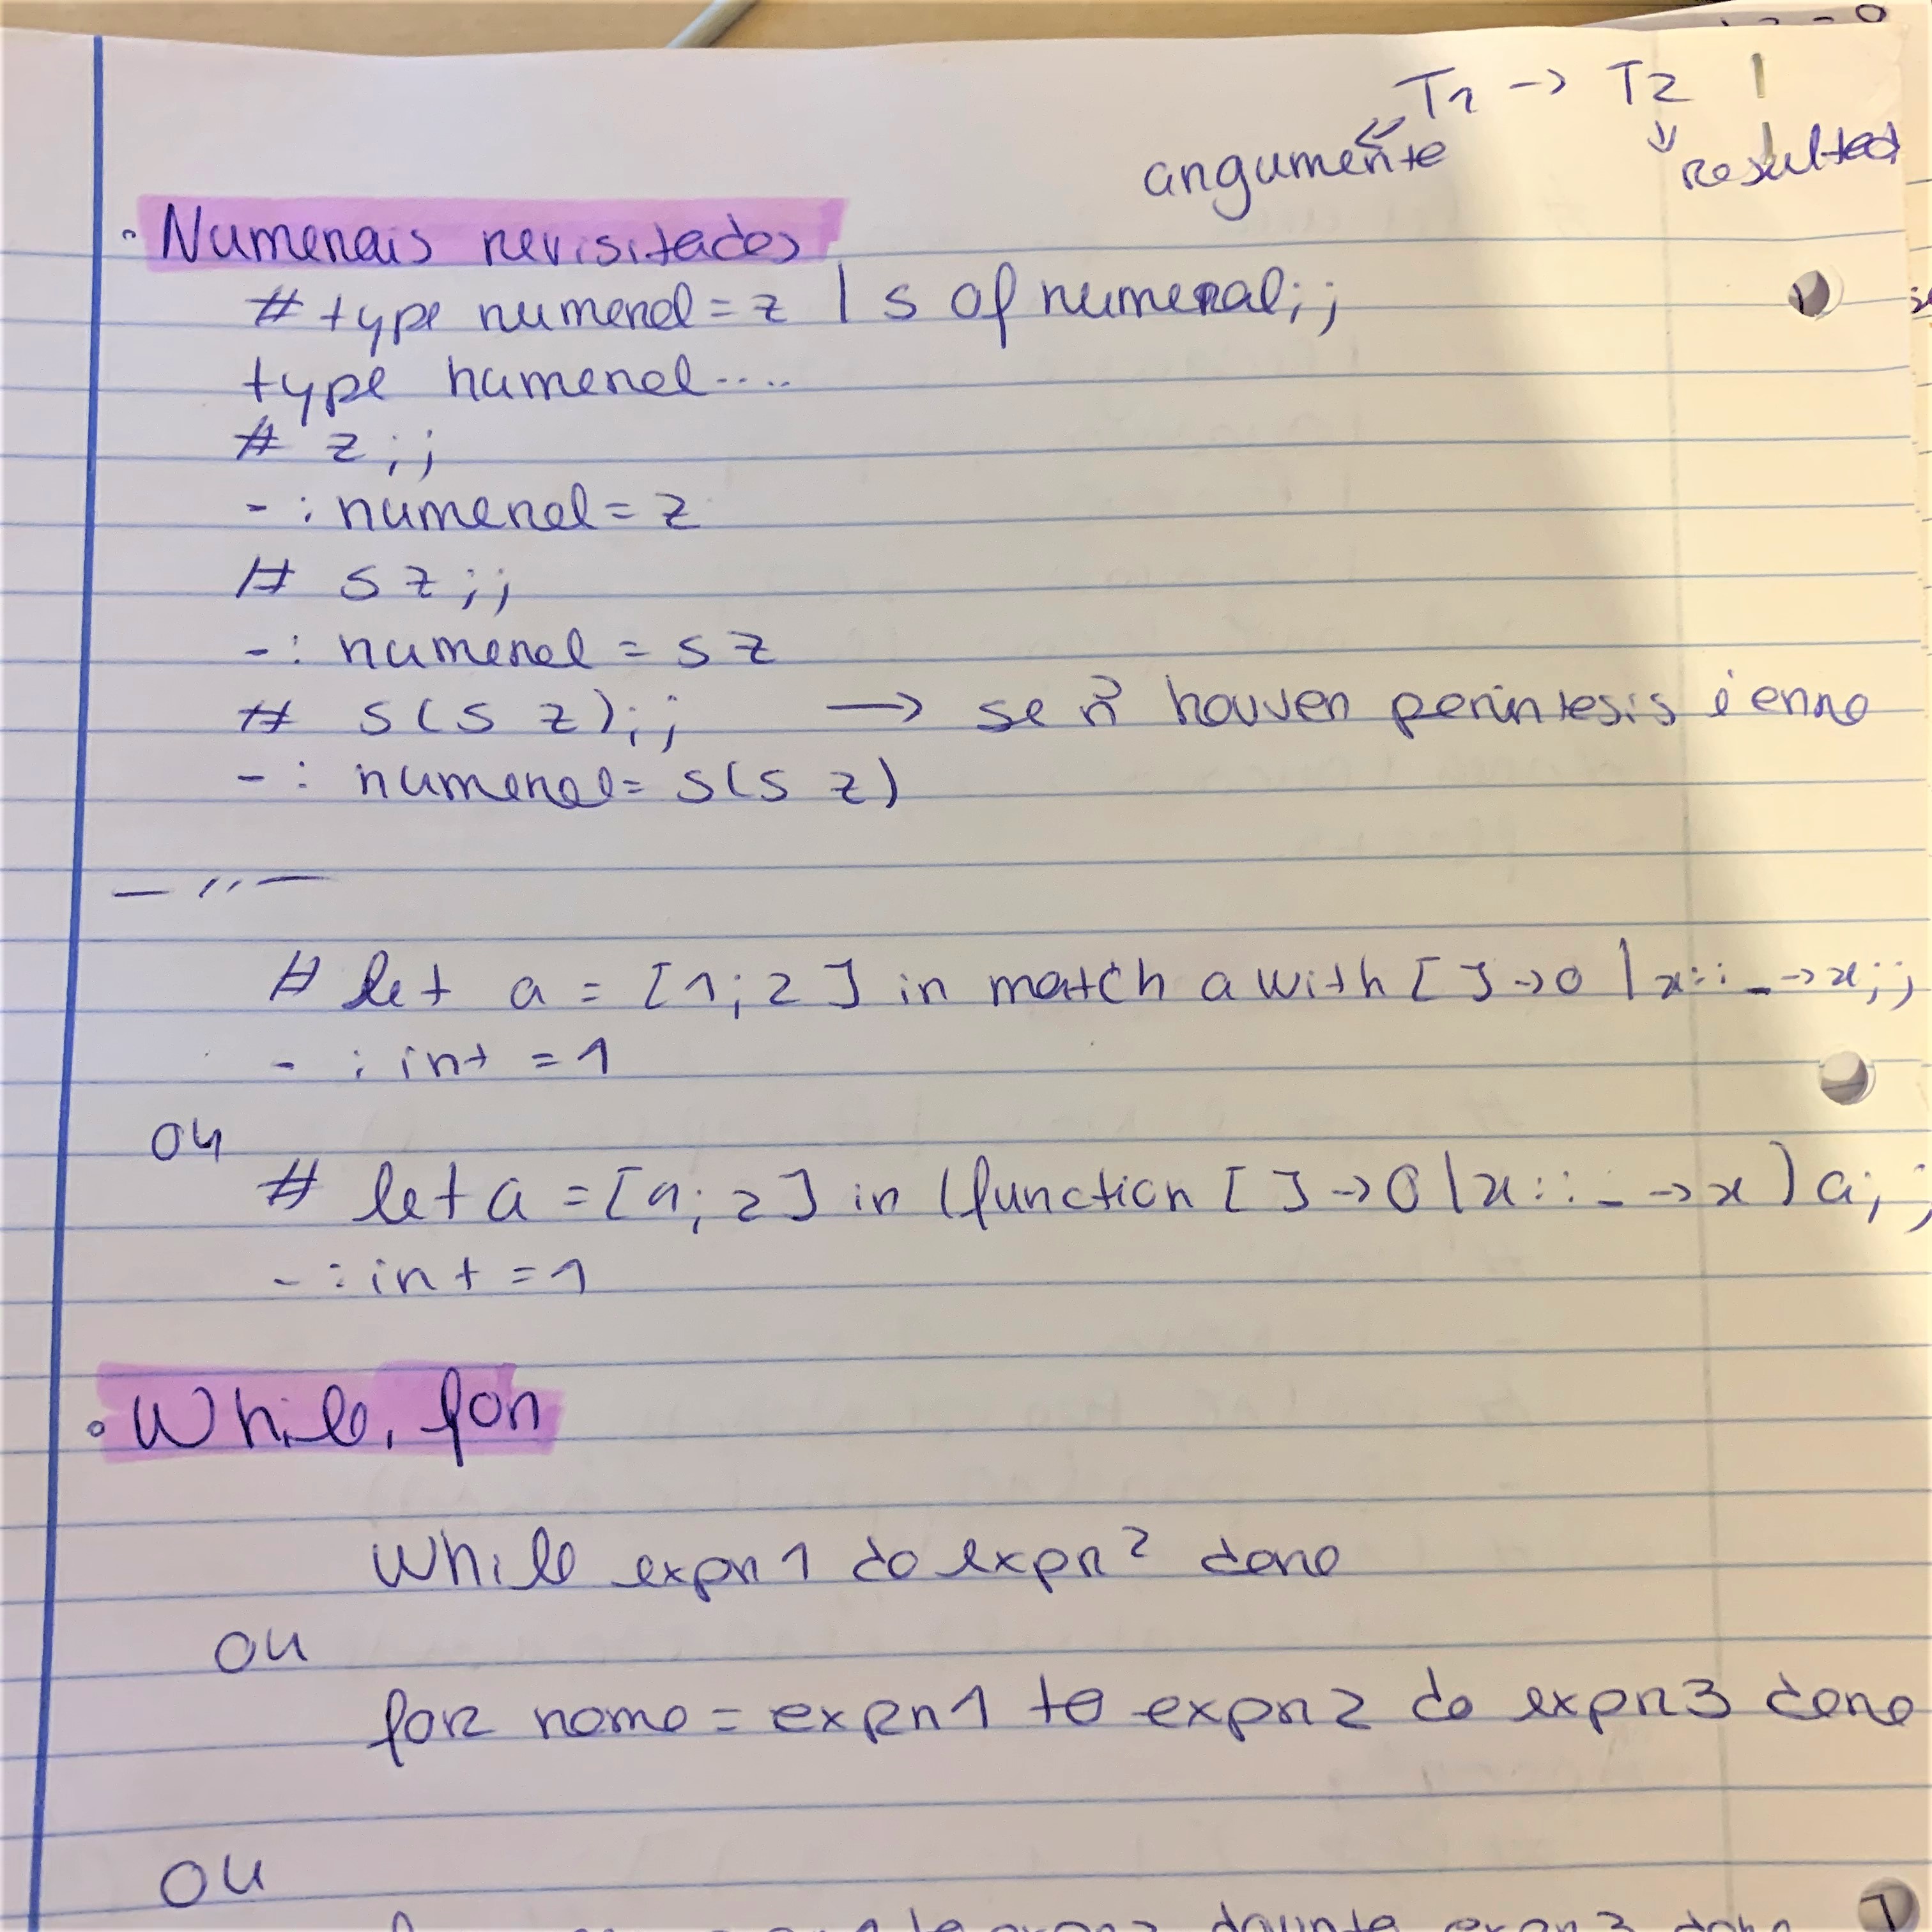 T1 -> T2
argumento resultado
• Numerais revisitados
# type numeral = z | s of numeral;;
type numeral....
# z;;
- : numeral = z
# s z;;
- : numeral = s z
# s(s z);; -> se ñ houver parêntesis é erro
- : numeral = s(s z)
— '' —
# let a = [1;2] in match a with [] -> 0 | x::_ -> x;;
- : int = 1
ou
# let a = [1;2] in (function [] -> 0 | x::_ -> x) a;;
- : int = 1
• While, for
While expr1 do expr2 done
ou
for nome = expr1 to expr2 do expr3 done
ou